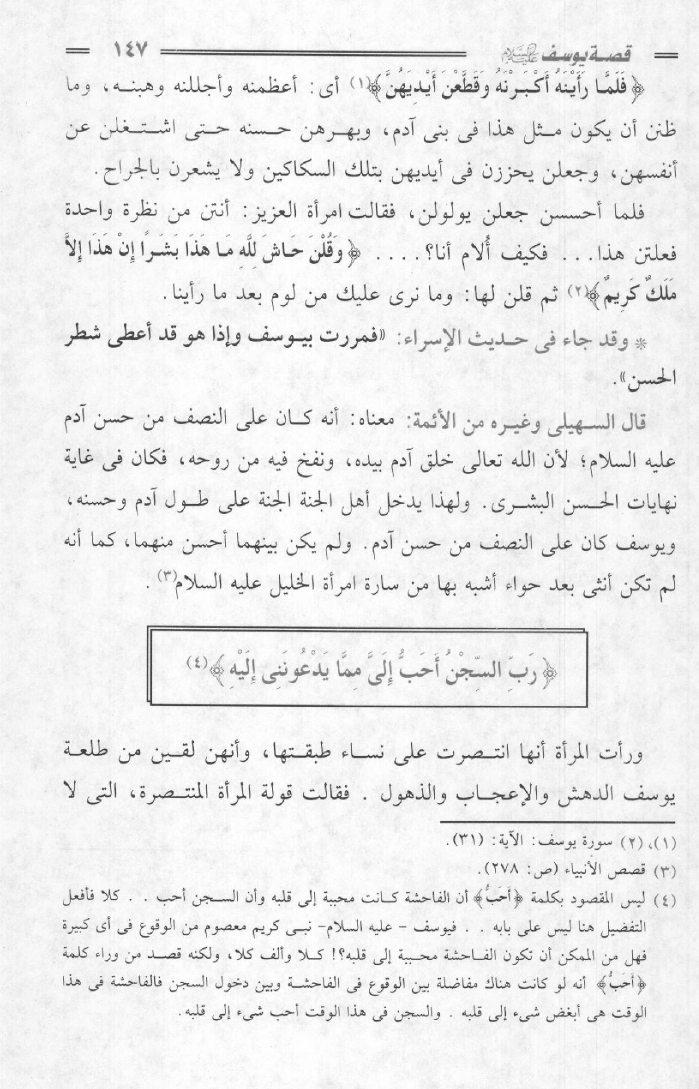 قصة يوسف عليه السلام
١٤٧
﴿ فَلَمَّا رَأَيْنَهُ أَكْبَرْنَهُ وَقَطَّعْنَ أَيْدِيَهُنَّ ﴾(١) أى: أعظمنه وأجللنه وهبنه، وما
ظنن أن يكون مثل هذا فى بنى آدم، وبهرهن حسنه حتى اشتغلن عن
أنفسهن، وجعلن يحززن فى أيديهن بتلك السكاكين ولا يشعرن بالجراح.
فلما أحسسن جعلن يولولن، فقالت امرأة العزيز: أنتن من نظرة واحدة
فعلتن هذا... فكيف أُلام أنا؟.... ﴿ وَقُلْنَ حَاشَ لِلَّهِ مَا هَذَا بَشَرًا إِنْ هَذَا إِلاَّ
مَلَكٌ كَرِيمٌ ﴾(٢) ثم قلن لها: وما نرى عليك من لوم بعد ما رأينا.
* وقد جاء فى حديث الإسراء: «فمررت بيوسف وإذا هو قد أعطى شطر
الحسن».
قال السهيلى وغيره من الأئمة: معناه: أنه كان على النصف من حسن آدم
عليه السلام؛ لأن الله تعالى خلق آدم بيده، ونفخ فيه من روحه، فكان فى غاية
نهايات الحسن البشرى. ولهذا يدخل أهل الجنة الجنة على طول آدم وحسنه،
ويوسف كان على النصف من حسن آدم. ولم يكن بينهما أحسن منهما، كما أنه
لم تكن أنثى بعد حواء أشبه بها من سارة امرأة الخليل عليه السلام(٣).
﴿ رَبِّ السِّجْنُ أَحَبُّ إِلَىَّ مِمَّا يَدْعُونَنِى إِلَيْهِ ﴾(٤)
ورأت المرأة أنها انتصرت على نساء طبقتها، وأنهن لقين من طلعة
يوسف الدهش والإعجاب والذهول . فقالت قولة المرأة المنتصرة، التى لا
(١)، (٢) سورة يوسف: الآية: (٣١).
(٣) قصص الأنبياء (ص: ٢٧٨).
(٤) ليس المقصود بكلمة ﴿أَحَبُّ﴾ أن الفاحشة كانت محببة إلى قلبه وأن السجن أحب . . كلا فأفعل
التفضيل هنا ليس على بابه . . فيوسف - عليه السلام- نبى كريم معصوم من الوقوع فى أى كبيرة
فهل من الممكن أن تكون الفاحشة محببة إلى قلبه؟! كلا وألف كلا، ولكنه قصد من وراء كلمة
﴿أَحَبُّ﴾ أنه لو كانت هناك مفاضلة بين الوقوع فى الفاحشة وبين دخول السجن فالفاحشة فى هذا
الوقت هى أبغض شىء إلى قلبه . والسجن فى هذا الوقت أحب شىء إلى قلبه.